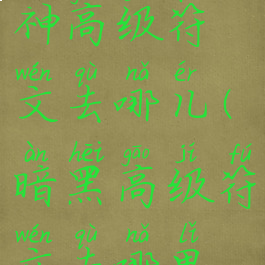 神高级符
wén qù nǎ ér
文去哪儿(
àn hēi gāo jí fú
暗黑高级符
wén qù nǎ lǐ
文去哪里